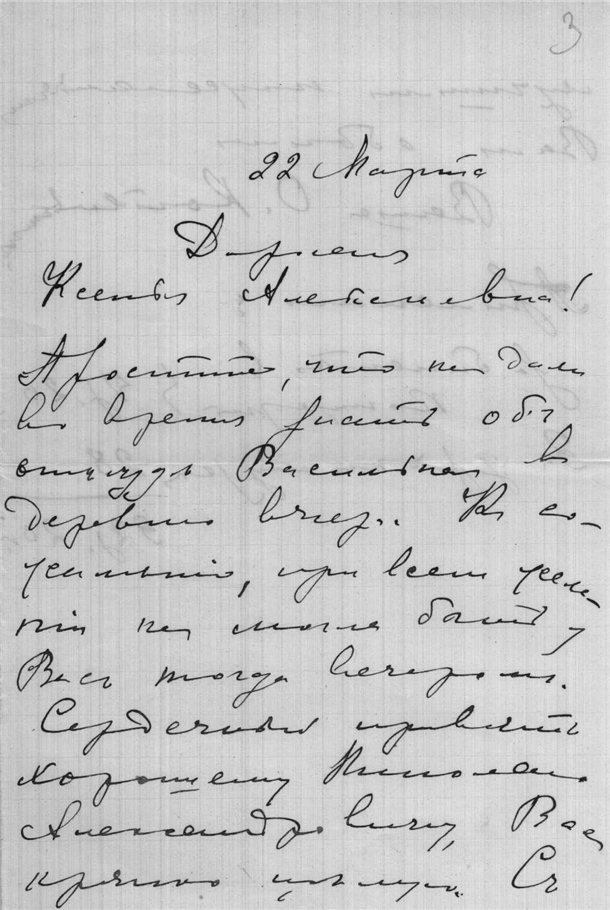 3
22 Марта
Дорогая
Ксенья Алексеевна!
Простите, что не дали
во время знать объ
Васильевны в
деревню вчера. Къ со-
жалению, при всем жела-
нии не могла быть у
Васъ тогда вечером.
Сердечный приветъ
хорошему Николаю
Александровичу, Вас
крепко целую. Съ